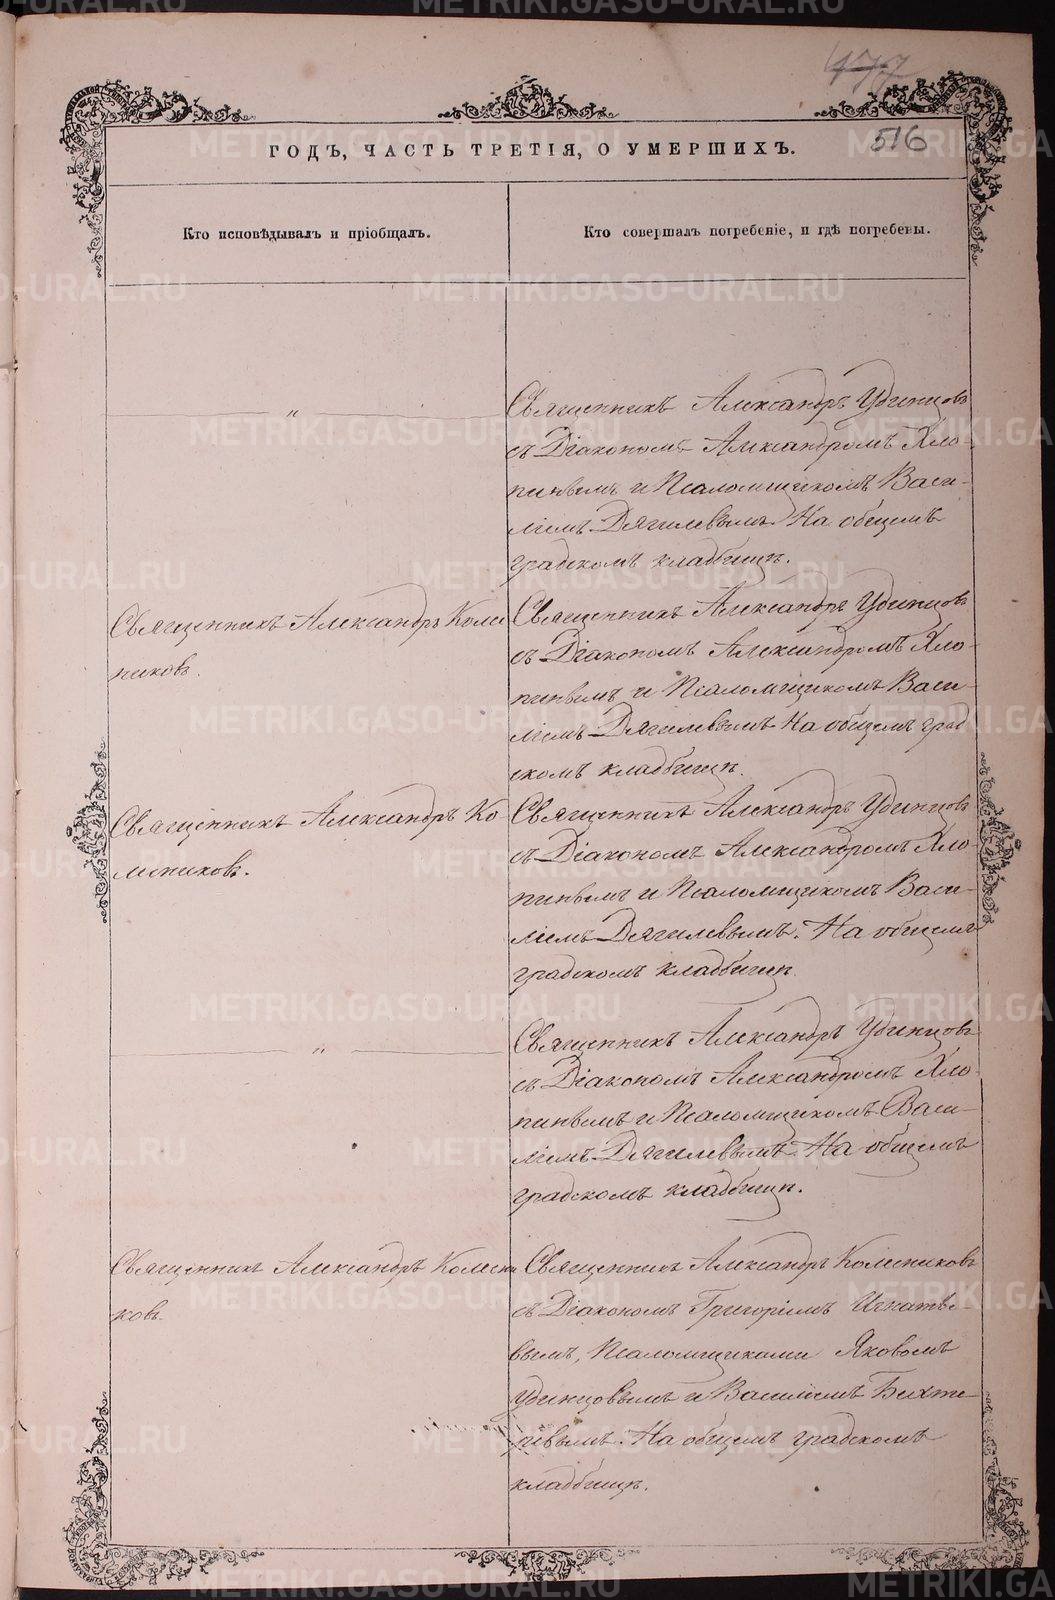 516
ГОДЪ, ЧАСТЬ ТРЕТІЯ, О УМЕРШИХЪ.
Кто исповѣдывалъ и пріобщалъ.
Кто совершалъ погребеніе, и гдѣ погребены.
"
Священникъ Александръ Удинцовъ
съ Діакономъ Александромъ Хло-
пинымъ и Псаломщикомъ Васи-
ліемъ Дягилевымъ На общемъ
градскомъ кладбищѣ.
Священникъ Александръ Колес
никовъ.
Священникъ Александръ Удинцовъ
съ Діакономъ Александромъ Хло-
пинымъ и Псаломщикомъ Васи-
ліемъ Дягилевымъ На общемъ град
скомъ кладбищѣ.
Священникъ Александръ Ко-
лесниковъ.
Священникъ Александръ Удинцовъ
съ Діакономъ Александромъ Хло-
пинымъ и Псаломщикомъ Васи-
ліемъ Дягилевымъ. На общемъ
градскомъ кладбищѣ.
"
Священникъ Александръ Удинцовъ
съ Діакономъ Александромъ Хло-
пинымъ и Псаломщикомъ Васи-
ліемъ Дягилевымъ На общемъ
градскомъ кладбищѣ.
Священникъ Александръ Колесни
ковъ.
Священникъ Александръ Колесниковъ
съ Діакономъ Григоріемъ Игнатье-
вымъ, Псаломщиками Яковомъ
Удинцовымъ и Василіемъ Бихте-
ревымъ. На общемъ градскомъ
кладбищѣ.
METRIKI.GASO-URAL.RU